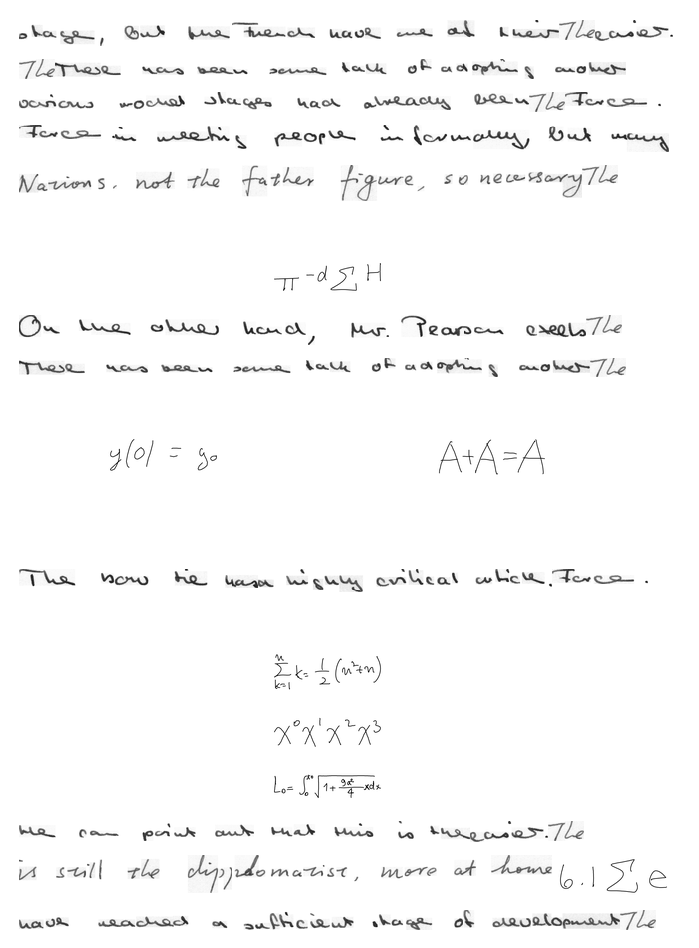 stage, but the French have one at their The easier.
The There has been some talk of adopting another
various rocket stages had already been The Force.
Force in meeting people informally, but many
Nations. not the father figure, so necessary The
π^{-d} Σ H
On the other hand, Mr. Pearson excels The
There has been some talk of adopting another The
y(0) = y₀ A+A=A
The bow tie has a highly critical article. Force.
\sum_{k=1}^{n} k = \frac{1}{2}(n²+n)
X⁰X¹X²X³
L₀ = \int_0^{x_0} \sqrt{1+\frac{9x^2}{4}} x dx
He can point out that this is the easier. The
is still the dipplomatist, more at home 6.1 Σ e
have reached a sufficient stage of development The